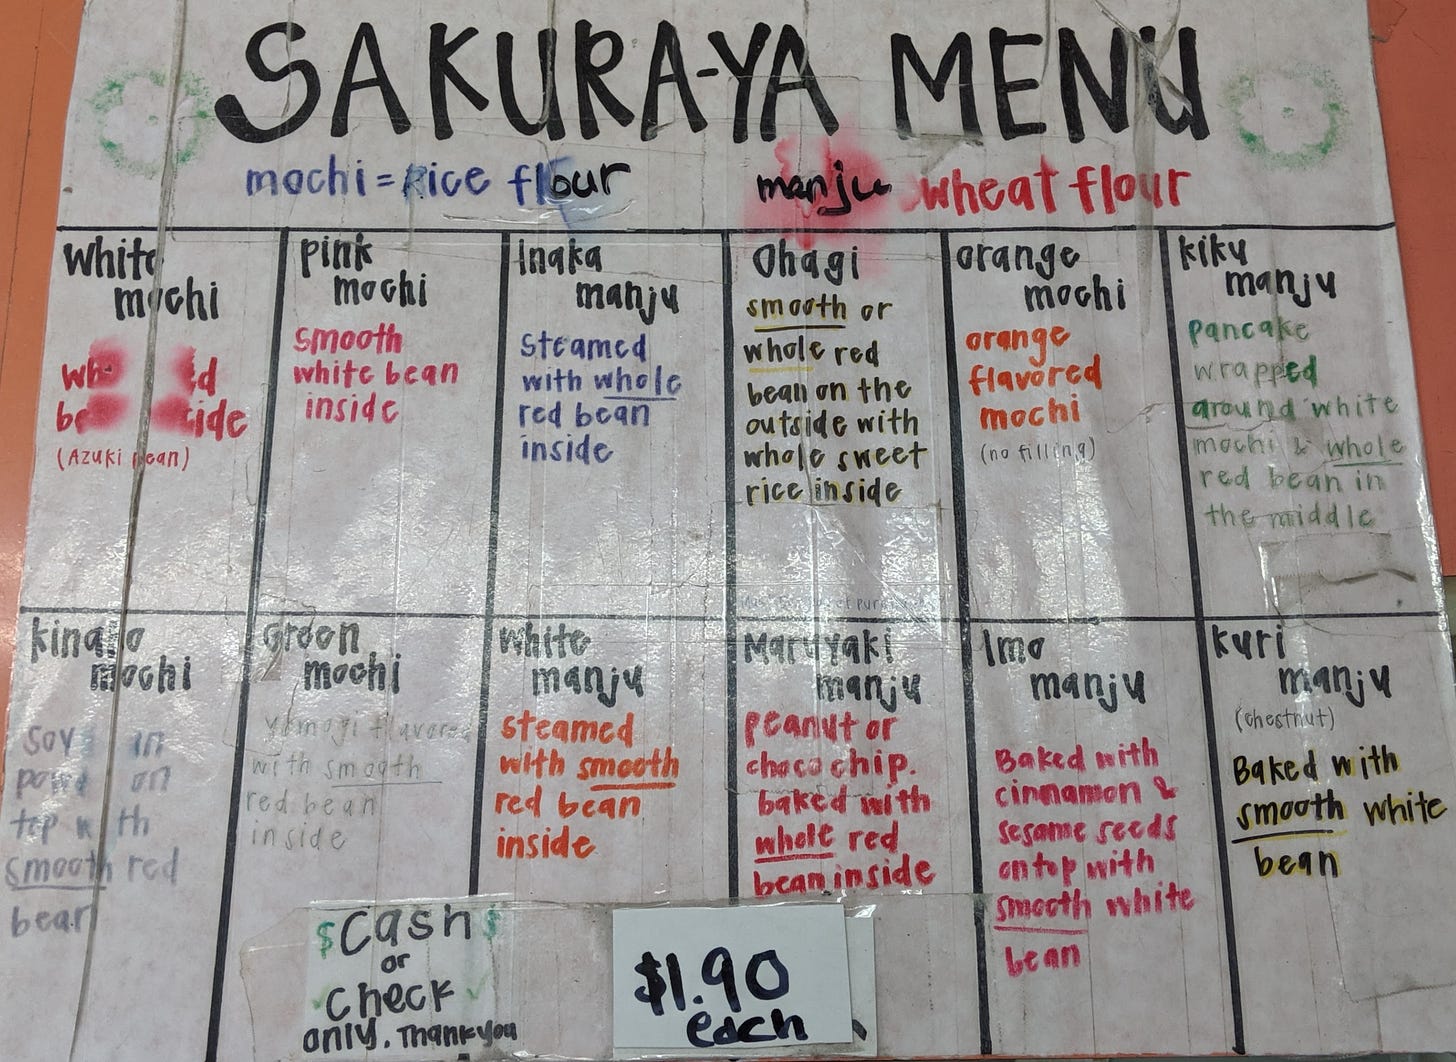 SAKURA-YA MENU
mochi = rice flour
manju wheat flour
white
mochi
red
inside
(Azuki bean)
pink
mochi
smooth
white bean
inside
Inaka
manju
steamed
with whole
red bean
inside
Ohagi
smooth or
whole red
bean on the
outside with
whole sweet
rice inside
orange
mochi
orange
flavored
mochi
(no filling)
kiku
manju
pancake
wrapped
around white
mochi & whole
red bean in
the middle
kinako
mochi
soy in
on
top with
smooth red
bean
green
mochi
yomogi flavored
with smooth
red bean
inside
white
manju
steamed
with smooth
red bean
inside
Maruyaki
manju
peanut or
choco chip.
baked with
whole red
bean inside
Imo
manju
Baked with
cinnamon &
sesame seeds
on top with
smooth white
bean
kuri
manju
(chestnut)
Baked with
smooth white
bean
$Cash$
or
check
only. Thank you
$1.90
each